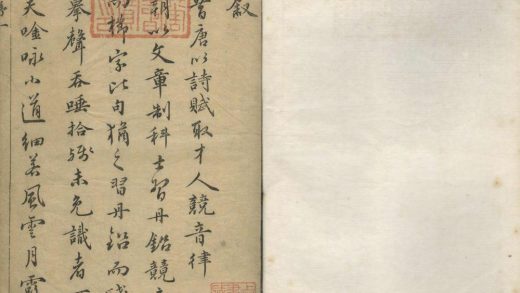 叙
昔唐以詩賦取才人競音律
朝以文章制科士習丹鉛競
而櫛字比句猶之習丹鉛而
聲吞唾拾殘未免識者
夫唫咏小道細若風雲月露